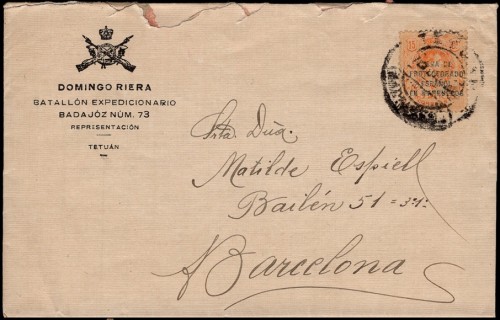 DOMINGO RIERA
BATALLÓN EXPEDICIONARIO
BADAJÓZ NÚM. 73
REPRESENTACIÓN
TETUÁN
15
ZONA DE
PROTECTORADO
ESPAÑOL
EN MARRUECOS
Srta. Dña.
Matilde Espiell
Bailén 51 = 3º 1ª
Barcelona